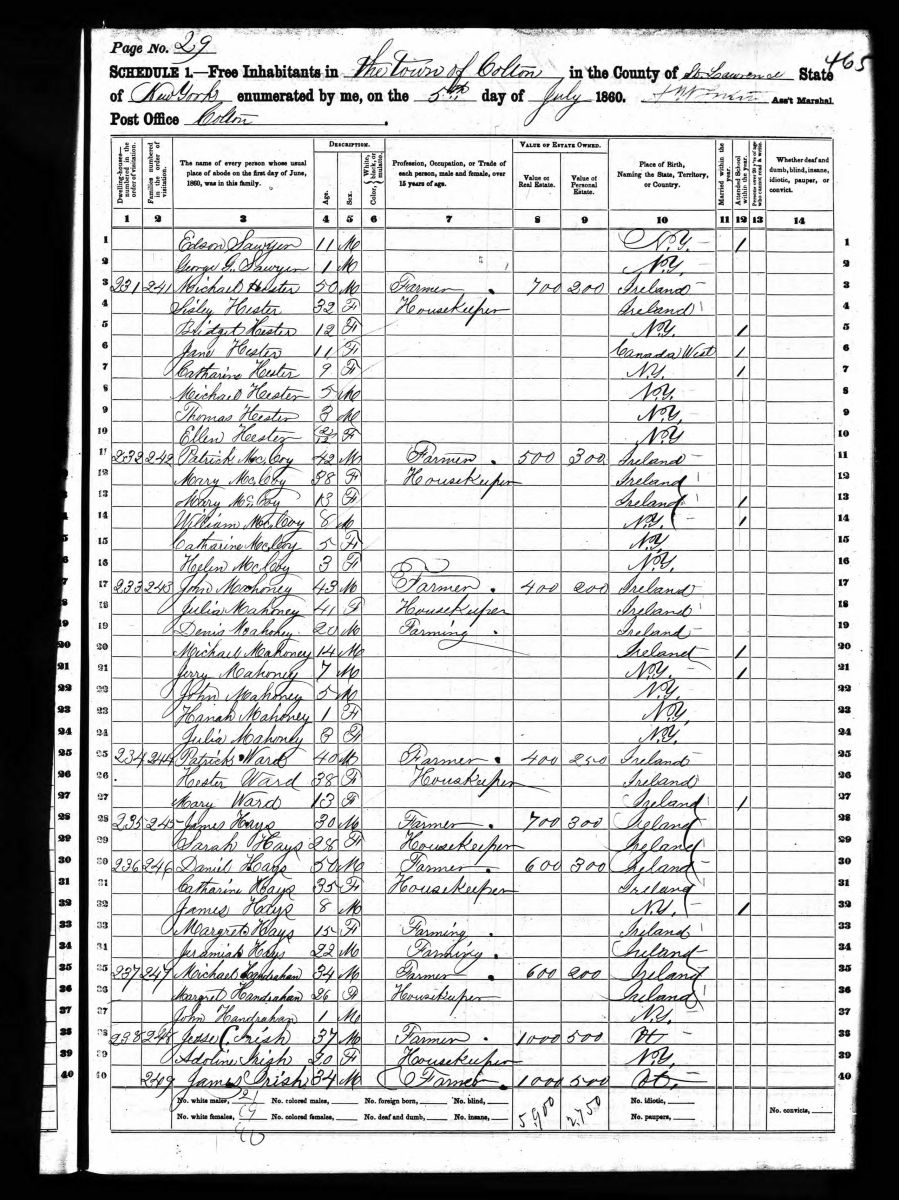 Page No. 29
465
SCHEDULE 1.—Free Inhabitants in The Town of Colton in the County of St Lawrence State
of New York enumerated by me, on the 5th day of July 1860. Ass't Marshal.
Post Office Colton.
Dwelling-houses—numbered in the order of visitation. Families numbered in the order of visitation. The name of every person whose usual place of abode on the first day of June, 1860, was in this family. DESCRIPTION. Age. Sex. Color, White, black, or mulatto. Profession, Occupation, or Trade of each person, male and female, over 15 years of age. VALUE OF ESTATE OWNED. Value of Real Estate. Value of Personal Estate. Place of Birth, Naming the State, Territory, or Country. Married within the year. Attended School within the year. Persons over 20 y'rs of age who cannot read & write. Whether deaf and dumb, blind, insane, idiotic, pauper, or convict.
1 2 3 4 5 6 7 8 9 10 11 12 13 14
1 Edson Sawyer 11 M N.Y. 1 1
2 George G. Sawyer 1 M N.Y. 2
3 231 241 Michael Hester 50 M Farmer 700 200 Ireland 3
4 Sisley Hester 32 F Housekeeper Ireland 4
5 Bridget Hester 12 F N.Y. 1 5
6 Jane Hester 11 F Canada West 1 6
7 Catharine Hester 9 F N.Y. 1 7
8 Michael Hester 5 M N.Y. 8
9 Thomas Hester 3 M N.Y. 9
10 Ellen Hester 2/12 F N.Y 10
11 232 242 Patrick McCoy 42 M Farmer 500 300 Ireland 11
12 Mary McCoy 38 F Housekeeper Ireland 12
13 Mary McCoy 13 F Ireland 1 13
14 William McCoy 8 M N.Y. 1 14
15 Catharine McCoy 5 F N.Y 15
16 Helin McCoy 3 F N.Y. 16
17 233 243 John Mahoney 43 M Farmer 400 200 Ireland 17
18 Julia Mahoney 41 F Housekeeper Ireland 18
19 Denis Mahoney 20 M Farming Ireland 19
20 Michael Mahoney 14 M Ireland 1 20
21 Jerry Mahoney 7 M N.Y. 1 21
22 John Mahoney 5 M N.Y. 22
23 Hanah Mahoney 1 F N.Y. 23
24 Julia Mahoney 3 F N.Y. 24
25 234 244 Patrick Ward 40 M Farmer 400 250 Ireland 25
26 Hester Ward 38 F Housekeeper Ireland 26
27 Mary Ward 13 F Ireland 1 27
28 235 245 James Hays 30 M Farmer 700 300 Ireland 28
29 Sarah Hays 28 F Housekeeper Ireland 29
30 236 246 Daniel Hays 50 M Farmer 600 300 Ireland 30
31 Catharine Hays 35 F Housekeeper Ireland 31
32 James Hays 8 M N.Y. 1 32
33 Margret Hays 15 F Farming Ireland 33
34 Jeramiah Hays 22 M Farming Ireland 34
35 237 247 Michael Handrahan 34 M Farmer 600 200 Ireland 35
36 Margret Handrahan 26 F Housekeeper Ireland 36
37 John Handrahan 1 M N.Y. 37
38 238 248 Jesse C. Irish 37 M Farmer 1000 500 Vt 38
39 Adoline Irish 30 F Housekeeper N.Y. 39
40 249 James Irish 34 M Farmer 1000 500 Vt. 40
No. white males, 21 No. colored males, No. foreign born, No. blind, 5,900 2,750 No. idiotic,
No. white females, 19 No. colored females, No. deaf and dumb, No. insane, No. paupers, No. convicts,
40